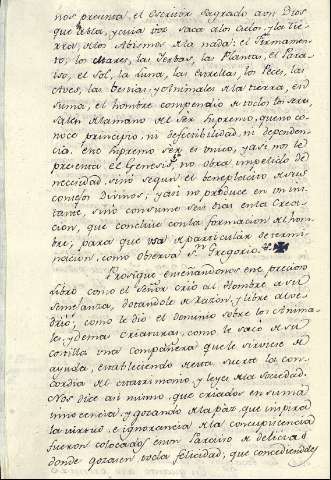 nos presenta, el Escritor Sagrado aun Dios
que abla, y cuia voz saca a los Cielos, y la Tie
rra, a los Abismos de la nada: el Firmamen
to, los Mares, las Yerbas, las Plantas, el Parai
so, el Sol, la Luna, las Estrellas, los Peces, las
Aves, las Bestias, y Animales de la tierra, en
suma, el hombre compendio de todos los seres,
salen de la mano del Ser Supremo, que no co
noce principio, ni defectibilidad, ni dependen
cia. Este Supremo Ser es unico, y asi nos le
presenta el Genesis; no obra impelido de
necesidad, sino segun el beneplacito de sus
consejos Divinos; y asi no produce en un ins
tante, sino consume seis dias en la Crea
cion, que concluie con la formacion del hom
bre, para que usa de particular determi
nacion, como observa Sn. Gregorio.
Prosigue enseñandonos este precioso
Libro como el Señor crió al Hombre a su
semejanza, dotandole de razon, y libre alve
drio; como le dió el dominio sobre los Anima
les y demas Criaturas, como le sacó de su
costilla una compañera que le sirviese de
ayuda, estableciendo de esta suerte la con
cordia del matrimonio, y leyes de la Sociedad.
Nos dice asi mismo, que criados en suma
innocencia, y gozando de la paz que inspira
la virtud, e ignorancia de la concupiscencia
fueron colocados en un Jardin de delicias
donde gozasen toda felicidad, que concediendoles